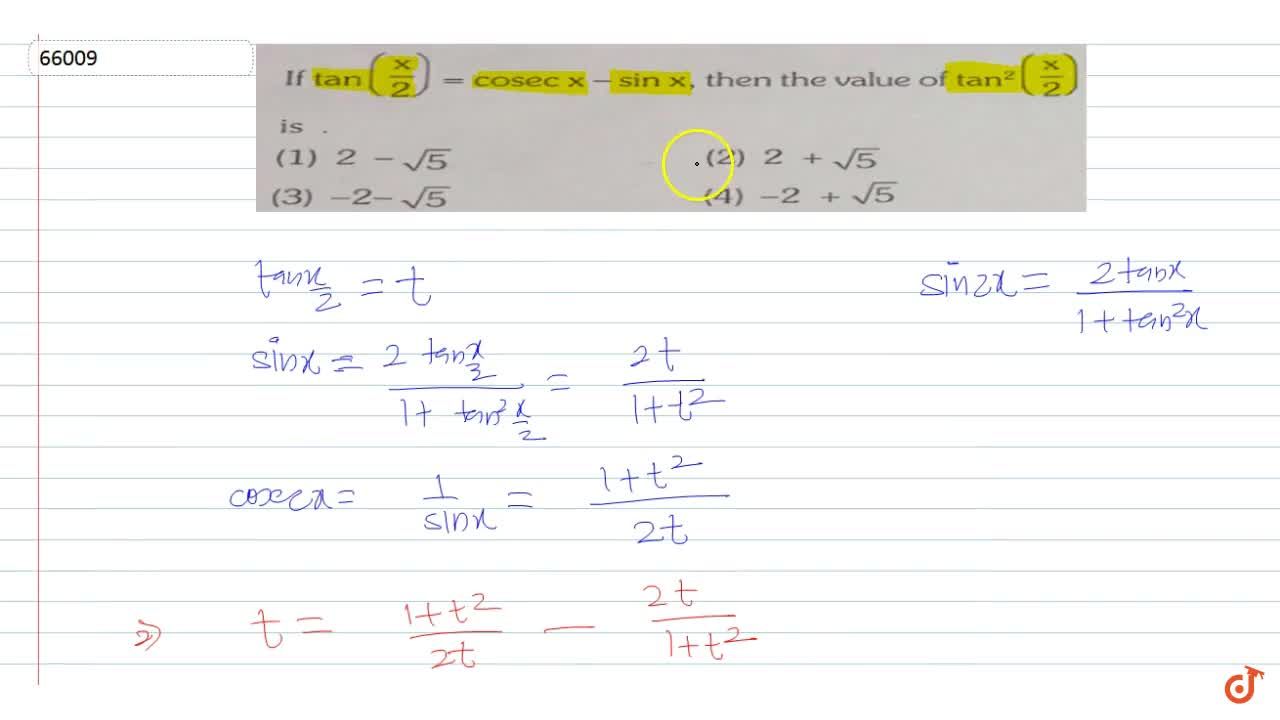 66009
If tan(x/2) = cosec x − sin x, then the value of tan²(x/2)
is .
(1) 2 − √5 (2) 2 + √5
(3) −2− √5 (4) −2 + √5
tan x/2 = t
sin2x = 2tanx / 1+tan²x
sinx = 2 tan x/2 / 1+ tan² x/2 = 2t / 1+t²
cosecx = 1 / sinx = 1+t² / 2t
⇒ t = 1+t² / 2t − 2t / 1+t²